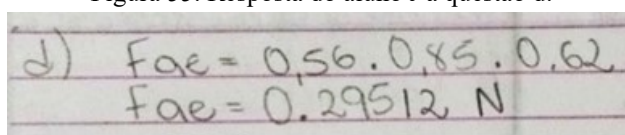 d) Fae = 0,56 . 0,85 . 0,62
Fae = 0.29512 N